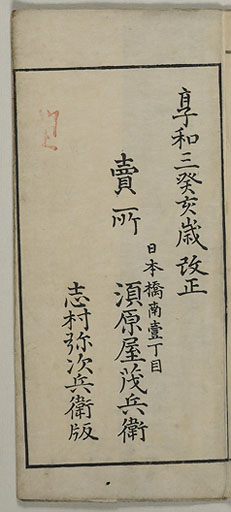 享和三癸亥歳改正
賣所
日本橋南壹丁目
須原屋茂兵衛
志村弥次兵衛版